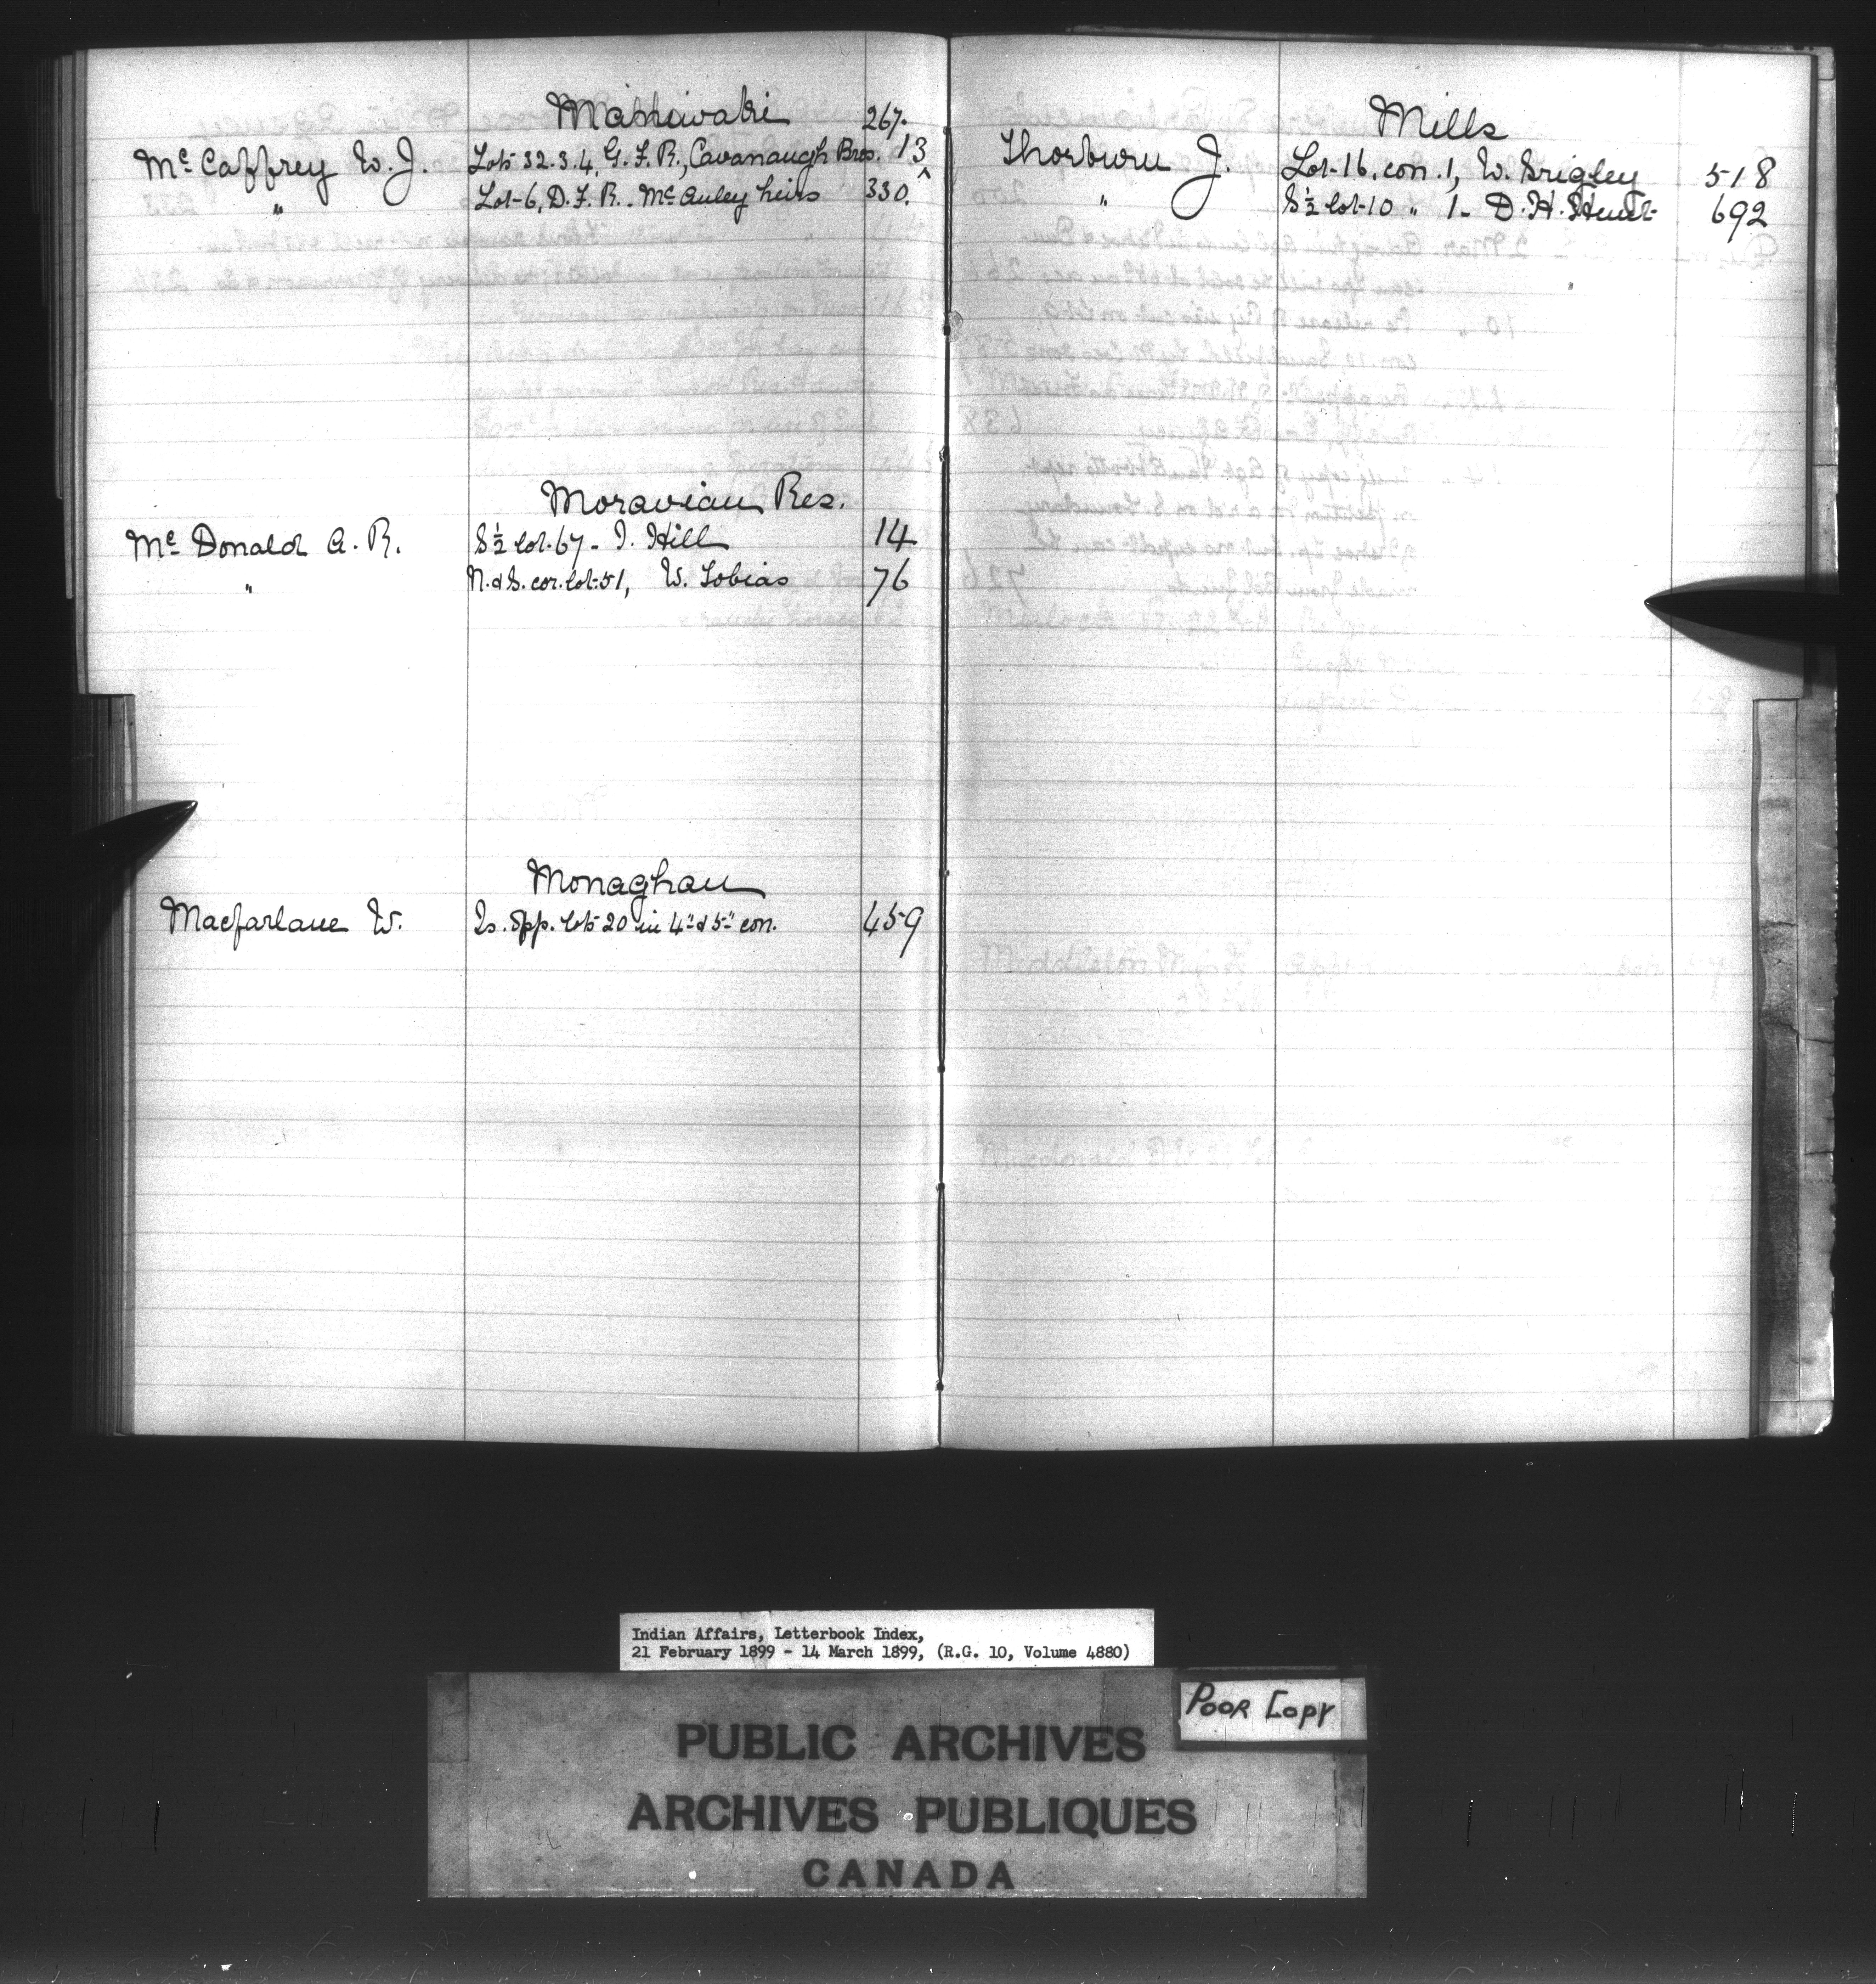 Maniwaki
267.
Mc Caffrey W. J. Lots 32.3.4, G. F. R., Cavanaugh Bros. 13
" Lot 6, D. F. R. McAuley heirs 330.
Moravian Res.
Mc Donald A. R. S½ lot 67 - J. Hill 14
" N. & S. cor. lot 51, W. Tobias 76
Monaghan
Macfarlane W. Is. opp. lots 20 in 4" & 5" con. 459
Mills
Thorburn J. Lot 16, con. 1, W. Grigley 518
" S½ lot 10 " 1 - D. H. Hunt 692
Indian Affairs, Letterbook Index,
21 February 1899 - 14 March 1899, (R.G. 10, Volume 4880)
POOR COPY
PUBLIC ARCHIVES
ARCHIVES PUBLIQUES
CANADA